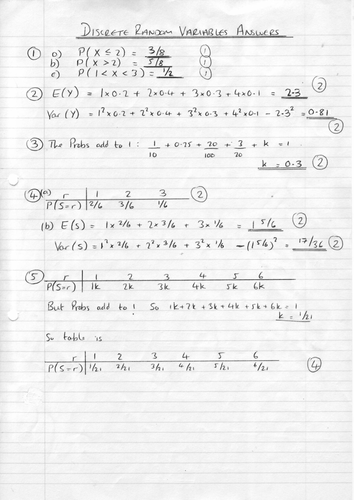 DISCRETE RANDOM VARIABLES ANSWERS
① a) P(X ≤ 2) = 3/8 ①
b) P(X > 2) = 5/8 ①
c) P(1 < X < 3) = 1/2 ①
② E(Y) = 1×0.2 + 2×0.4 + 3×0.3 + 4×0.1 = 2.3 ②
Var(Y) = 1²×0.2 + 2²×0.4 + 3²×0.3 + 4²×0.1 - 2.3² = 0.81 ②
③ The Probs add to 1: 1/10 + 0.25 + 20/100 + 3/20 + k = 1
k = 0.3 ②
④(a) r 1 2 3
P(S=r) 2/6 3/6 1/6 ②
(b) E(S) = 1×2/6 + 2×3/6 + 3×1/6 = 1 5/6 ②
Var(S) = 1²×2/6 + 2²×3/6 + 3²×1/6 - (1 5/6)² = 17/36 ②
⑤ r 1 2 3 4 5 6
P(S=r) 1k 2k 3k 4k 5k 6k
But Probs add to 1! So 1k+2k+3k+4k+5k+6k = 1
k = 1/21
So table is
r 1 2 3 4 5 6
P(S=r) 1/21 2/21 3/21 4/21 5/21 6/21 ④